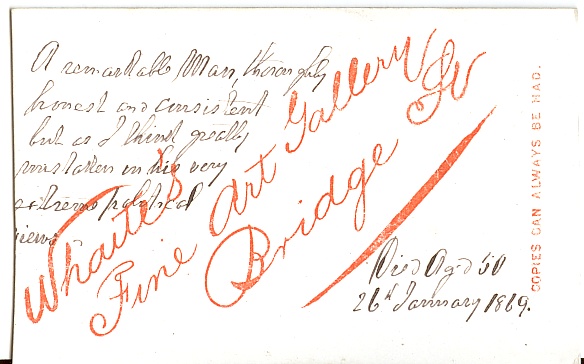 A remarkable Man, thoroughly
honest and consistent
but as I think greatly
mistaken in his very
extreme political
views -
Whaite's
Fine Art Gallery
Bridge St
COPIES CAN ALWAYS BE HAD.
Died Aged 50
26th January 1869.